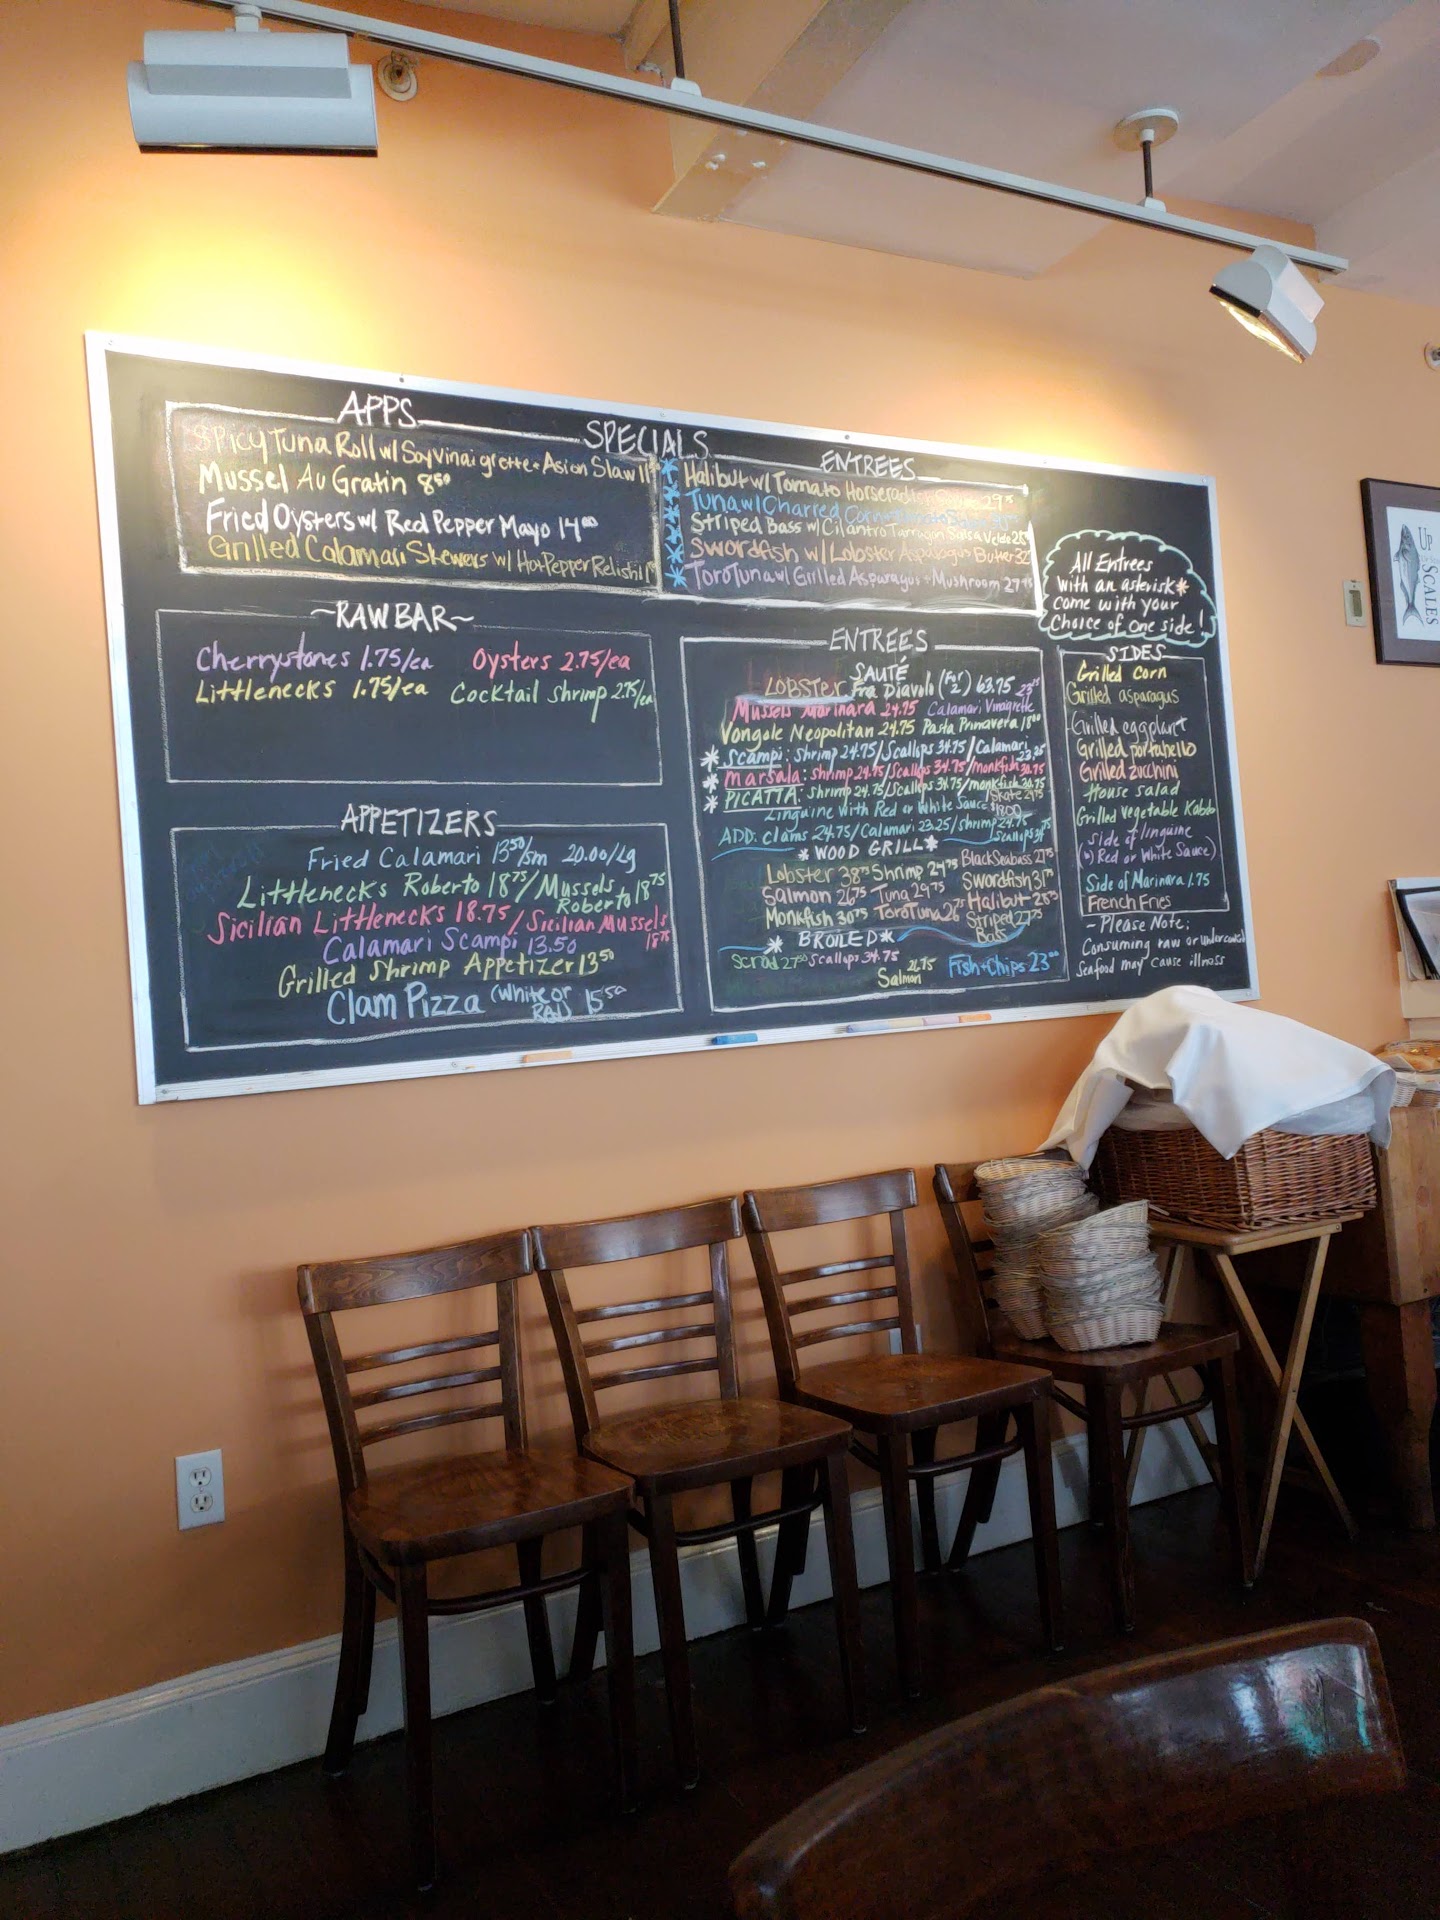 SPECIALS
APPS
Spicy Tuna Roll w/ Soy Vinaigrette + Asian Slaw
Mussel Au Gratin 8⁵⁰
Fried Oysters w/ Red Pepper Mayo 14⁰⁰
Grilled Calamari Skewers w/ Hot Pepper Relish
ENTREES
* Halibut w/ Tomato Horseradish 29
* Tuna w/ Charred Corn
* Striped Bass w/ Cilantro Tarragon Salsa Verde
* Swordfish w/ Lobster Asparagus Butter 32
* Toro Tuna w/ Grilled Asparagus + Mushroom 27
All Entrees
with an asterisk *
come with your
choice of one side!
~RAW BAR~
Cherrystones 1.75/ea Oysters 2.75/ea
Littlenecks 1.75/ea Cocktail shrimp 2.75/ea
APPETIZERS
Fried Calamari 13⁵⁰/sm 20.00/Lg
Littlenecks Roberto 18⁷⁵/Mussels
Roberto 18⁷⁵
Sicilian Littlenecks 18.75/Sicilian Mussels
18⁷⁵
Calamari Scampi 13.50
Grilled Shrimp Appetizer 13⁵⁰
Clam Pizza (White or
Red) 15⁵⁰
ENTREES
SAUTÉ
LOBSTER Fra Diavolo (For 2) 63.75
Mussels Marinara 24.75 Calamari Vinaigrette
Vongole Neopolitan 24.75 Pasta Primavera 18⁰⁰
* Scampi: Shrimp 24.75/Scallops 34.75/Calamari
23.25
* Marsala: Shrimp 24.75/Scallops 34.75/Monkfish 30.75
* PICATTA: Shrimp 24.75/Scallops 34.75/monkfish 30.75
/Skate 24.75
Linguine with Red or White Sauce $18.00
ADD: clams 24.75/Calamari 23.25/shrimp 24.75
Scallops
* WOOD GRILL *
Lobster 38⁷⁵ Shrimp 24⁷⁵ Black Seabass 27⁷⁵
Salmon 26.75 Tuna 29⁷⁵ Swordfish 31⁷⁵
Monkfish 30.75 Toro Tuna 26⁷⁵ Halibut 28⁷⁵
Striped 27⁷⁵
Bass
* BROILED *
Scrod 27⁵⁰ Scallops 34.75
Salmon 26.75 Fish + Chips 23⁰⁰
SIDES
Grilled Corn
Grilled asparagus
Grilled eggplant
Grilled portabello
Grilled zucchini
House salad
Grilled Vegetable Kabob
Side of linguine
(w/ Red or White Sauce)
Side of Marinara 1.75
French Fries
- Please Note:
Consuming raw or undercooked
seafood may cause illness
UP
SCALES